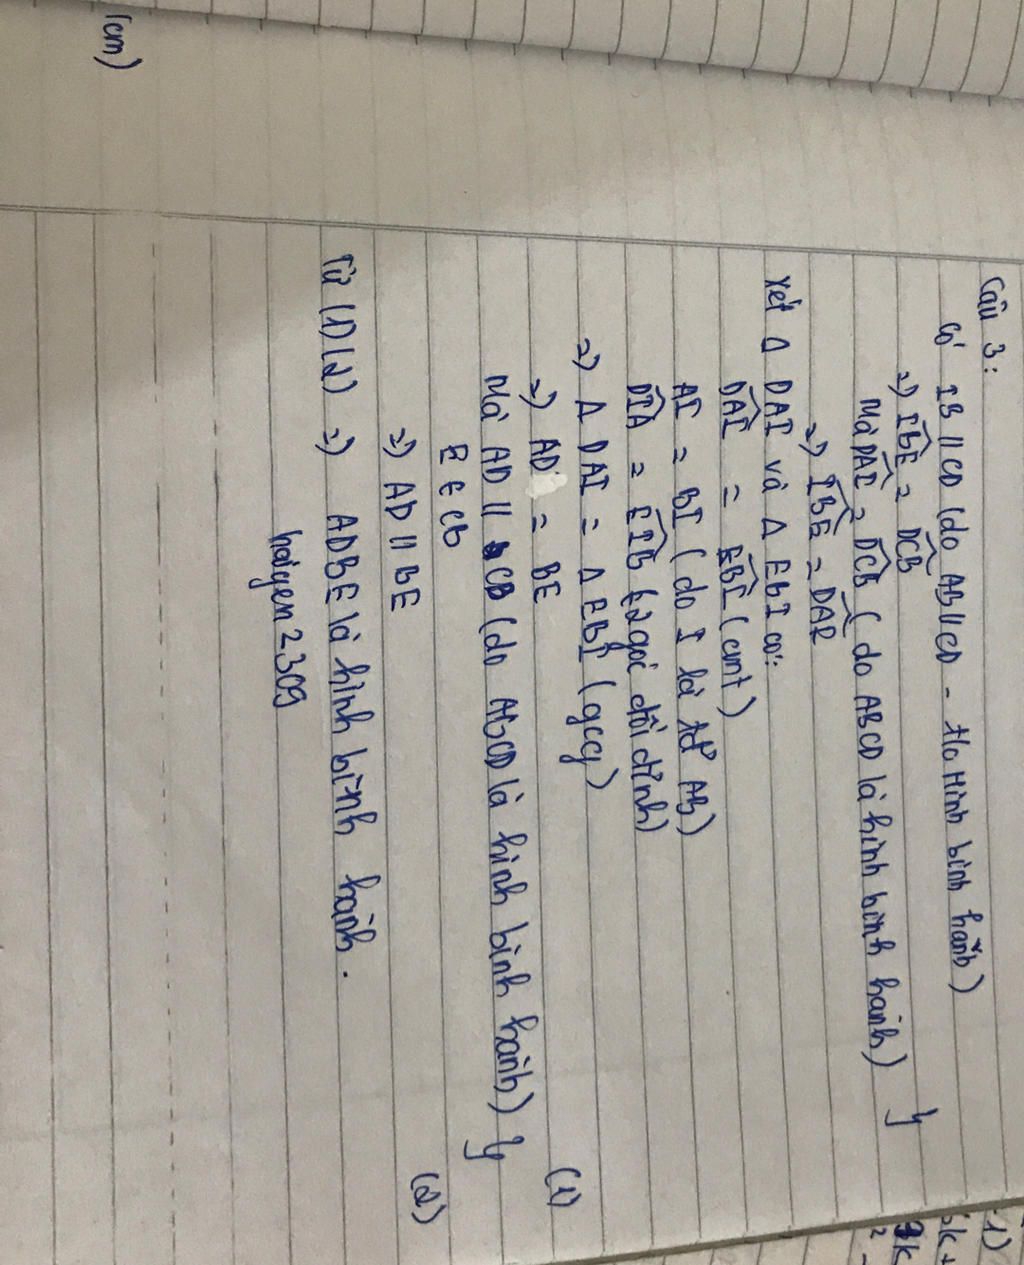 Câu 3:
Có IB // CD (do AB // CD - t/c Hình bình hành)
=) IBE = DCB
Mà DAI = DCB ( do ABCD là hình bình hành) }
=) IBE = DAI
Xét Δ DAI và Δ EBI có:
DAI = EBI (cmt)
AI = BI ( do I là tđ AB)
DIA = EIB (2 góc đối đỉnh)
=) Δ DAI = Δ EBI (gcg)
=) AD = BE (1)
Mà AD // CB (do ABCD là hình bình hành) }
E ∈ CB
=) AD // BE (2)
Từ (1)(2) =) ADBE là hình bình hành.
haiyen2309
1cm)
1)